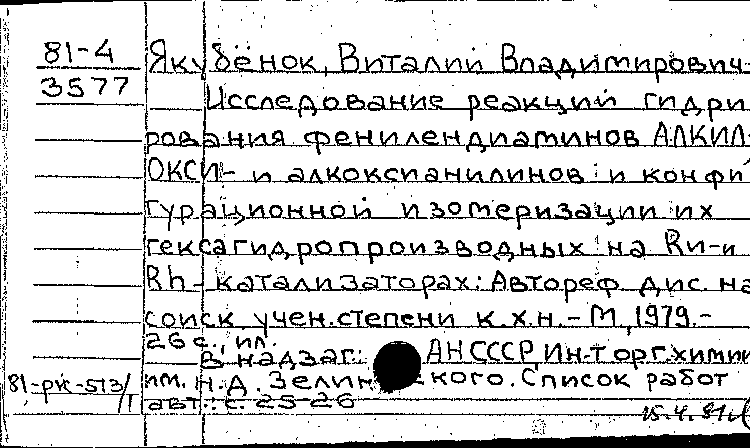 81-4
3577
Якубёнок, Виталий Владимирович.
Исследование реакций гидри
рования фенилендиаминов АЛКИЛ-
ОКСИ- и алкоксианилинов и конфи
гурационной изомеризации их
гексагидропроизводных на Ru-и
Rh-катализаторах: Автореф. дис. на
соиск. учен. степени к.х.н. - М, 1979.-
26 с., ил.
В надзаг.: АН СССР, Ин-т орг. химии
им. Н.Д. Зелинского. Список работ
авт.: с. 25-26
81-рк-513/
15.4.81